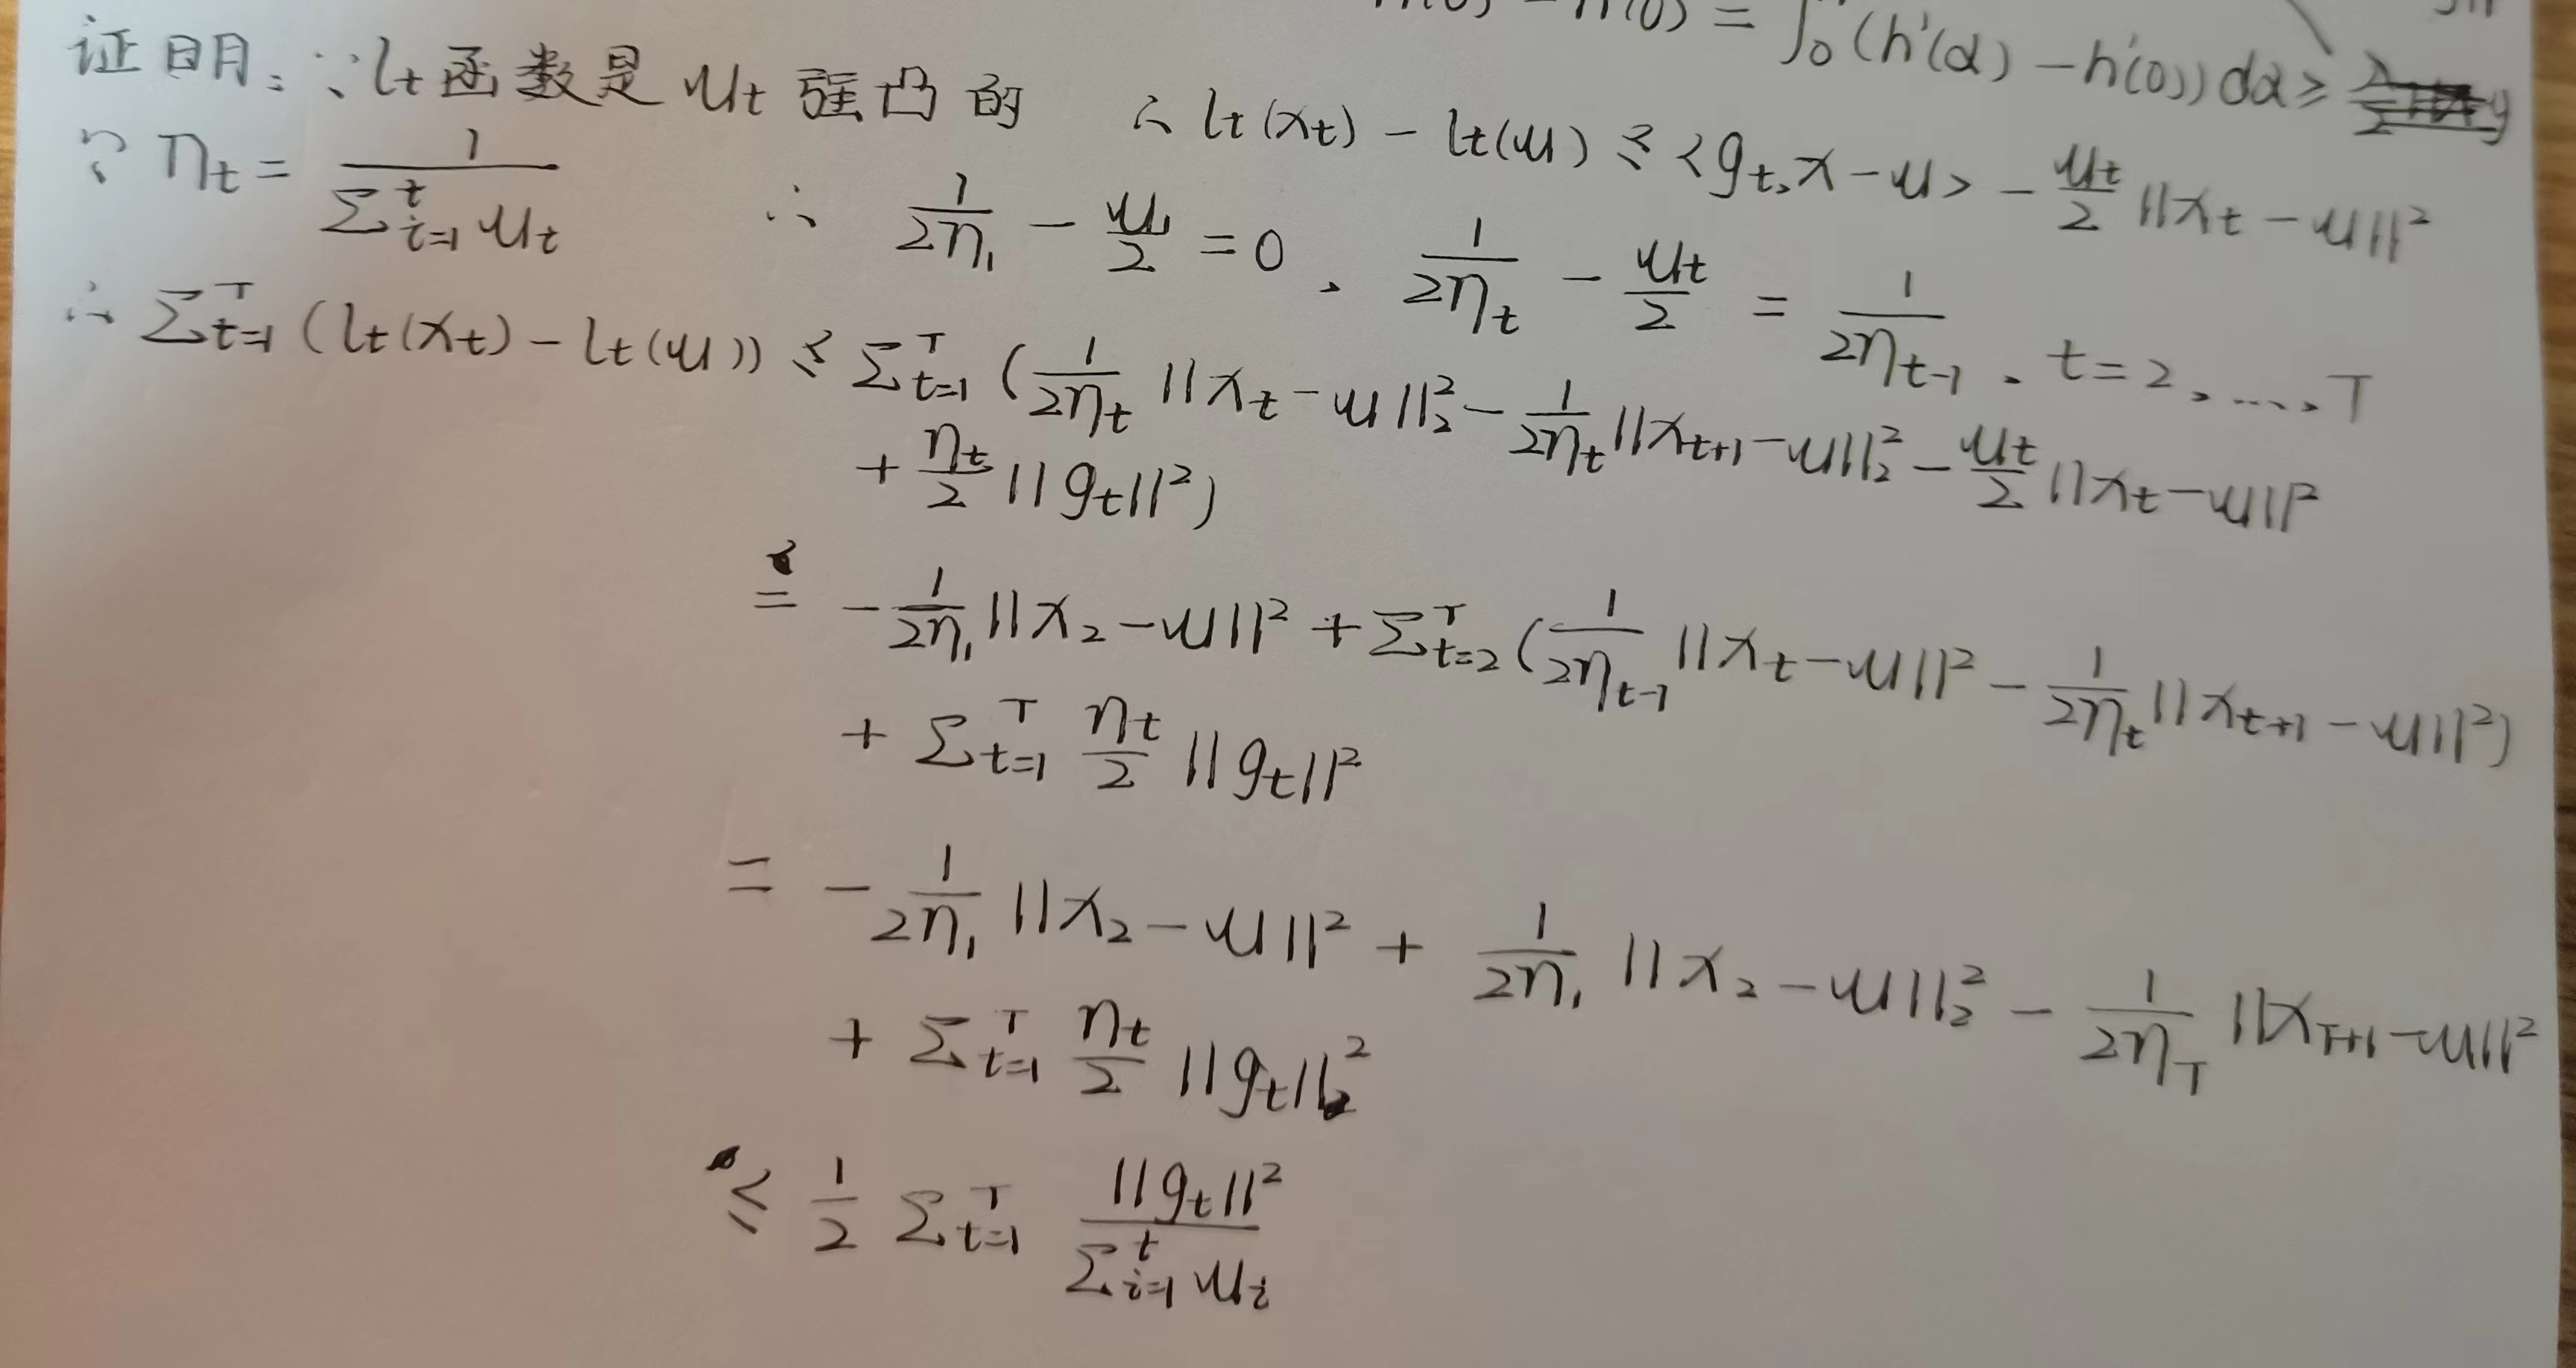 = ∫₀ (h'(α) - h'(0)) dα ≥
证明: ∵ lt函数是 μt 强凸的 ∴ lt(xt) - lt(u) ≤ <gt, x-u> - μt/2 ||xt - u||²
∵ ηt = 1/(Σ_{i=1}^t μt) ∴ 1/(2η₁) - μ₁/2 = 0, 1/(2ηt) - μt/2 = 1/(2η_{t-1}), t=2, ..., T
∴ Σ_{t=1}^T (lt(xt) - lt(u)) ≤ Σ_{t=1}^T (1/(2ηt) ||xt - u||₂² - 1/(2ηt) ||x_{t+1} - u||₂² - μt/2 ||xt - u||²
+ ηt/2 ||gt||²)
= -1/(2η₁) ||x₂ - u||² + Σ_{t=2}^T (1/(2η_{t-1}) ||xt - u||² - 1/(2ηt) ||x_{t+1} - u||²)
+ Σ_{t=1}^T ηt/2 ||gt||²
= -1/(2η₁) ||x₂ - u||² + 1/(2η₁) ||x₂ - u||₂² - 1/(2η_T) ||x_{T+1} - u||²
+ Σ_{t=1}^T ηt/2 ||gt||₂²
≤ 1/2 Σ_{t=1}^T ||gt||²/(Σ_{i=1}^t μi)